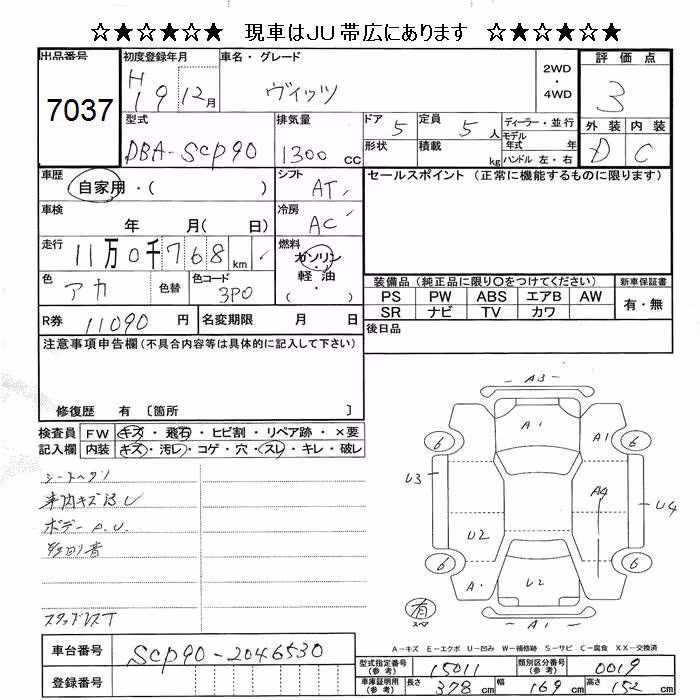 ☆★☆★☆★ 現車はJU帯広にあります ☆★☆★☆★
出品番号 7037
初度登録年月 H19 12月
車名・グレード ヴィッツ
2WD ・ 4WD
評価点 3
外装 D 内装 C
型式 DBA-SCP90
排気量 1300 cc
ドア 5 定員 5 人
形状 積載 kg
ディーラー・並行
モデル年式 年
ハンドル 左・右
車歴 自家用・( )
シフト AT
セールスポイント (正常に機能するものに限ります)
車検 年 月( 日)
冷房 AC
走行 11万0千768 km
燃料 ガソリン 軽油 ・( )
色 アカ 色替 色コード 3P0
装備品 (純正品に限り○をつけてください) 新車保証書
PS PW ABS エアB AW 有・無
SR ナビ TV カワ
R券 11090 円 名変期限 月 日
後日品
注意事項申告欄(不具合内容等は具体的に記入して下さい)
修復歴 有 〔箇所 〕
検査員 FW キズ・飛石・ヒビ割・リペア跡・×要
記入欄 内装 キズ・汚レ・コゲ・穴・スレ・キレ・破レ
シートヘタリ
車内キズ汚レ
ボデーA.U.
スタッドレスT
A3
A1 A1
6 6
U3 A4 U4
U2
6 6
A・ U2
A1
有
スペア
A-キズ E-エクボ U-凹み W-補修跡 S-サビ C-腐食 XX-交換済
車台番号 SCP90-2046530
登録番号
型式指定番号(参考) 15011 類別区分番号(参考) 0019
車庫証明用(参考) 長さ 378 cm 幅 169 cm 高さ 152 cm